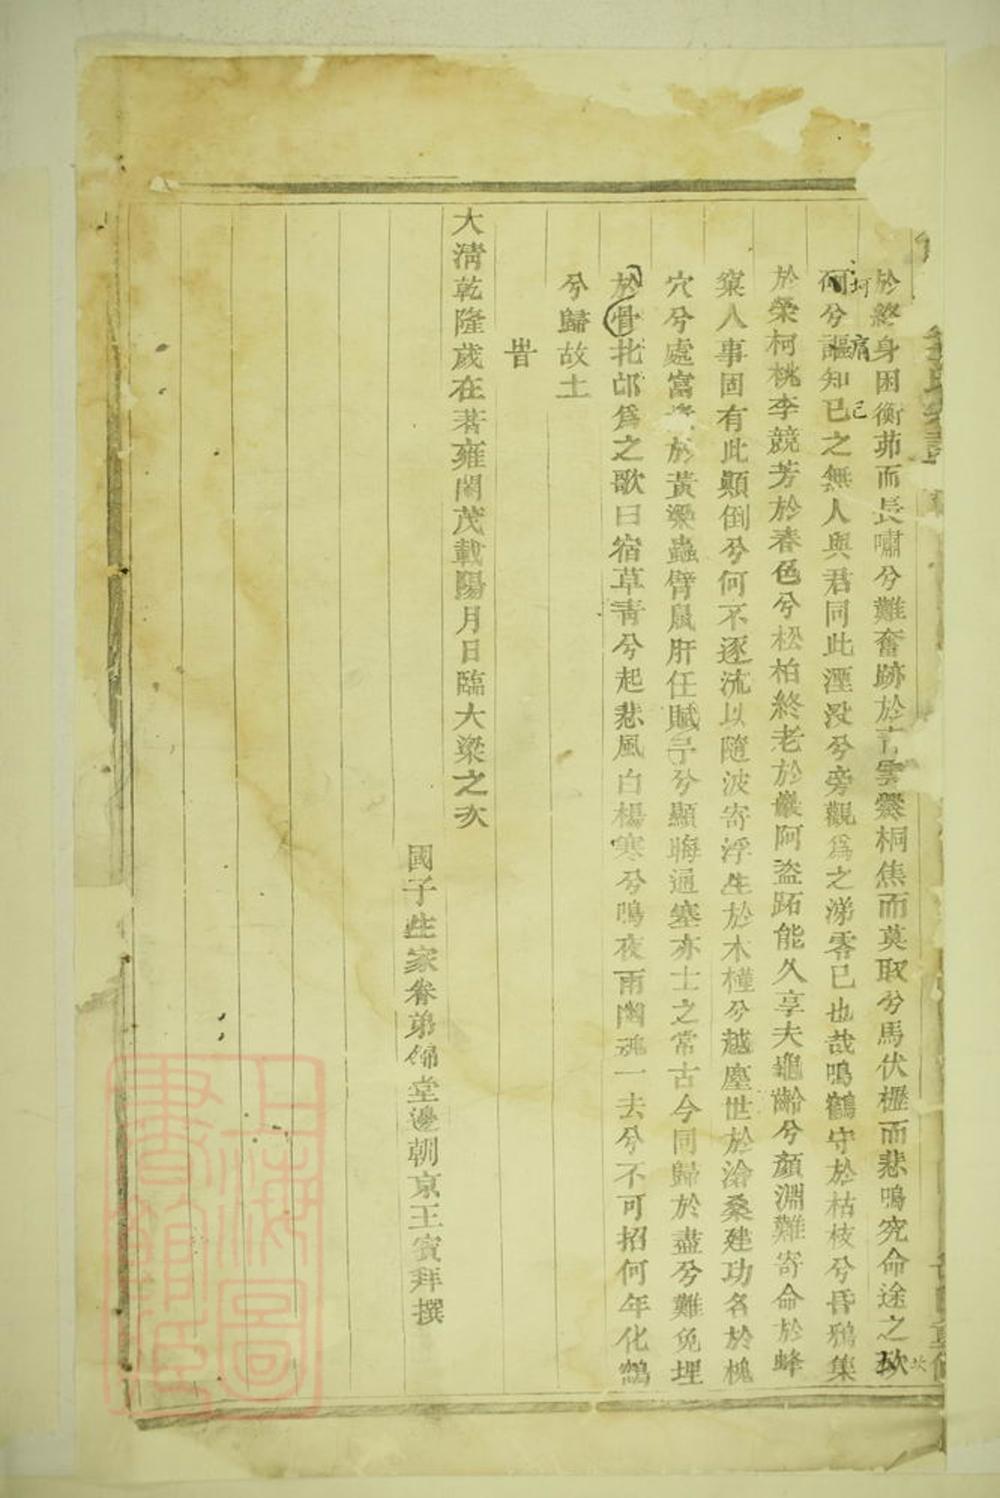 於終身困衡茆而長嘯兮難奮跡於雲爨桐焦而莫取兮馬伏櫪而悲鳴究命途之坎
坷兮謳知已之無人與君同此湮沒兮旁觀為之涕零已也哉鳴鶴守於枯枝兮昏鴉集
於榮柯桃李競芳於春色兮松柏終老於巖阿盜跖能久享夫龜齡兮顏淵難寄命於蜂
窠人事固有此顛倒兮何不逐流以隨波寄浮生於木槿兮越塵世於滄桑建功名於槐
穴兮處富於黃粱蟲臂鼠肝任賦予兮顯晦通塞亦士之常古今同歸於盡兮難免埋
於骨北邙為之歌曰宿草青兮起悲風白楊寒兮鳴夜雨幽魂一去兮不可招何年化鶴
兮歸故土
旹
大清乾隆歲在著雍閹茂載陽月日臨大梁之次
國子生家眷弟堂邊朝京王賓拜撰
坷
痛
己
坎
上海圖
書館藏